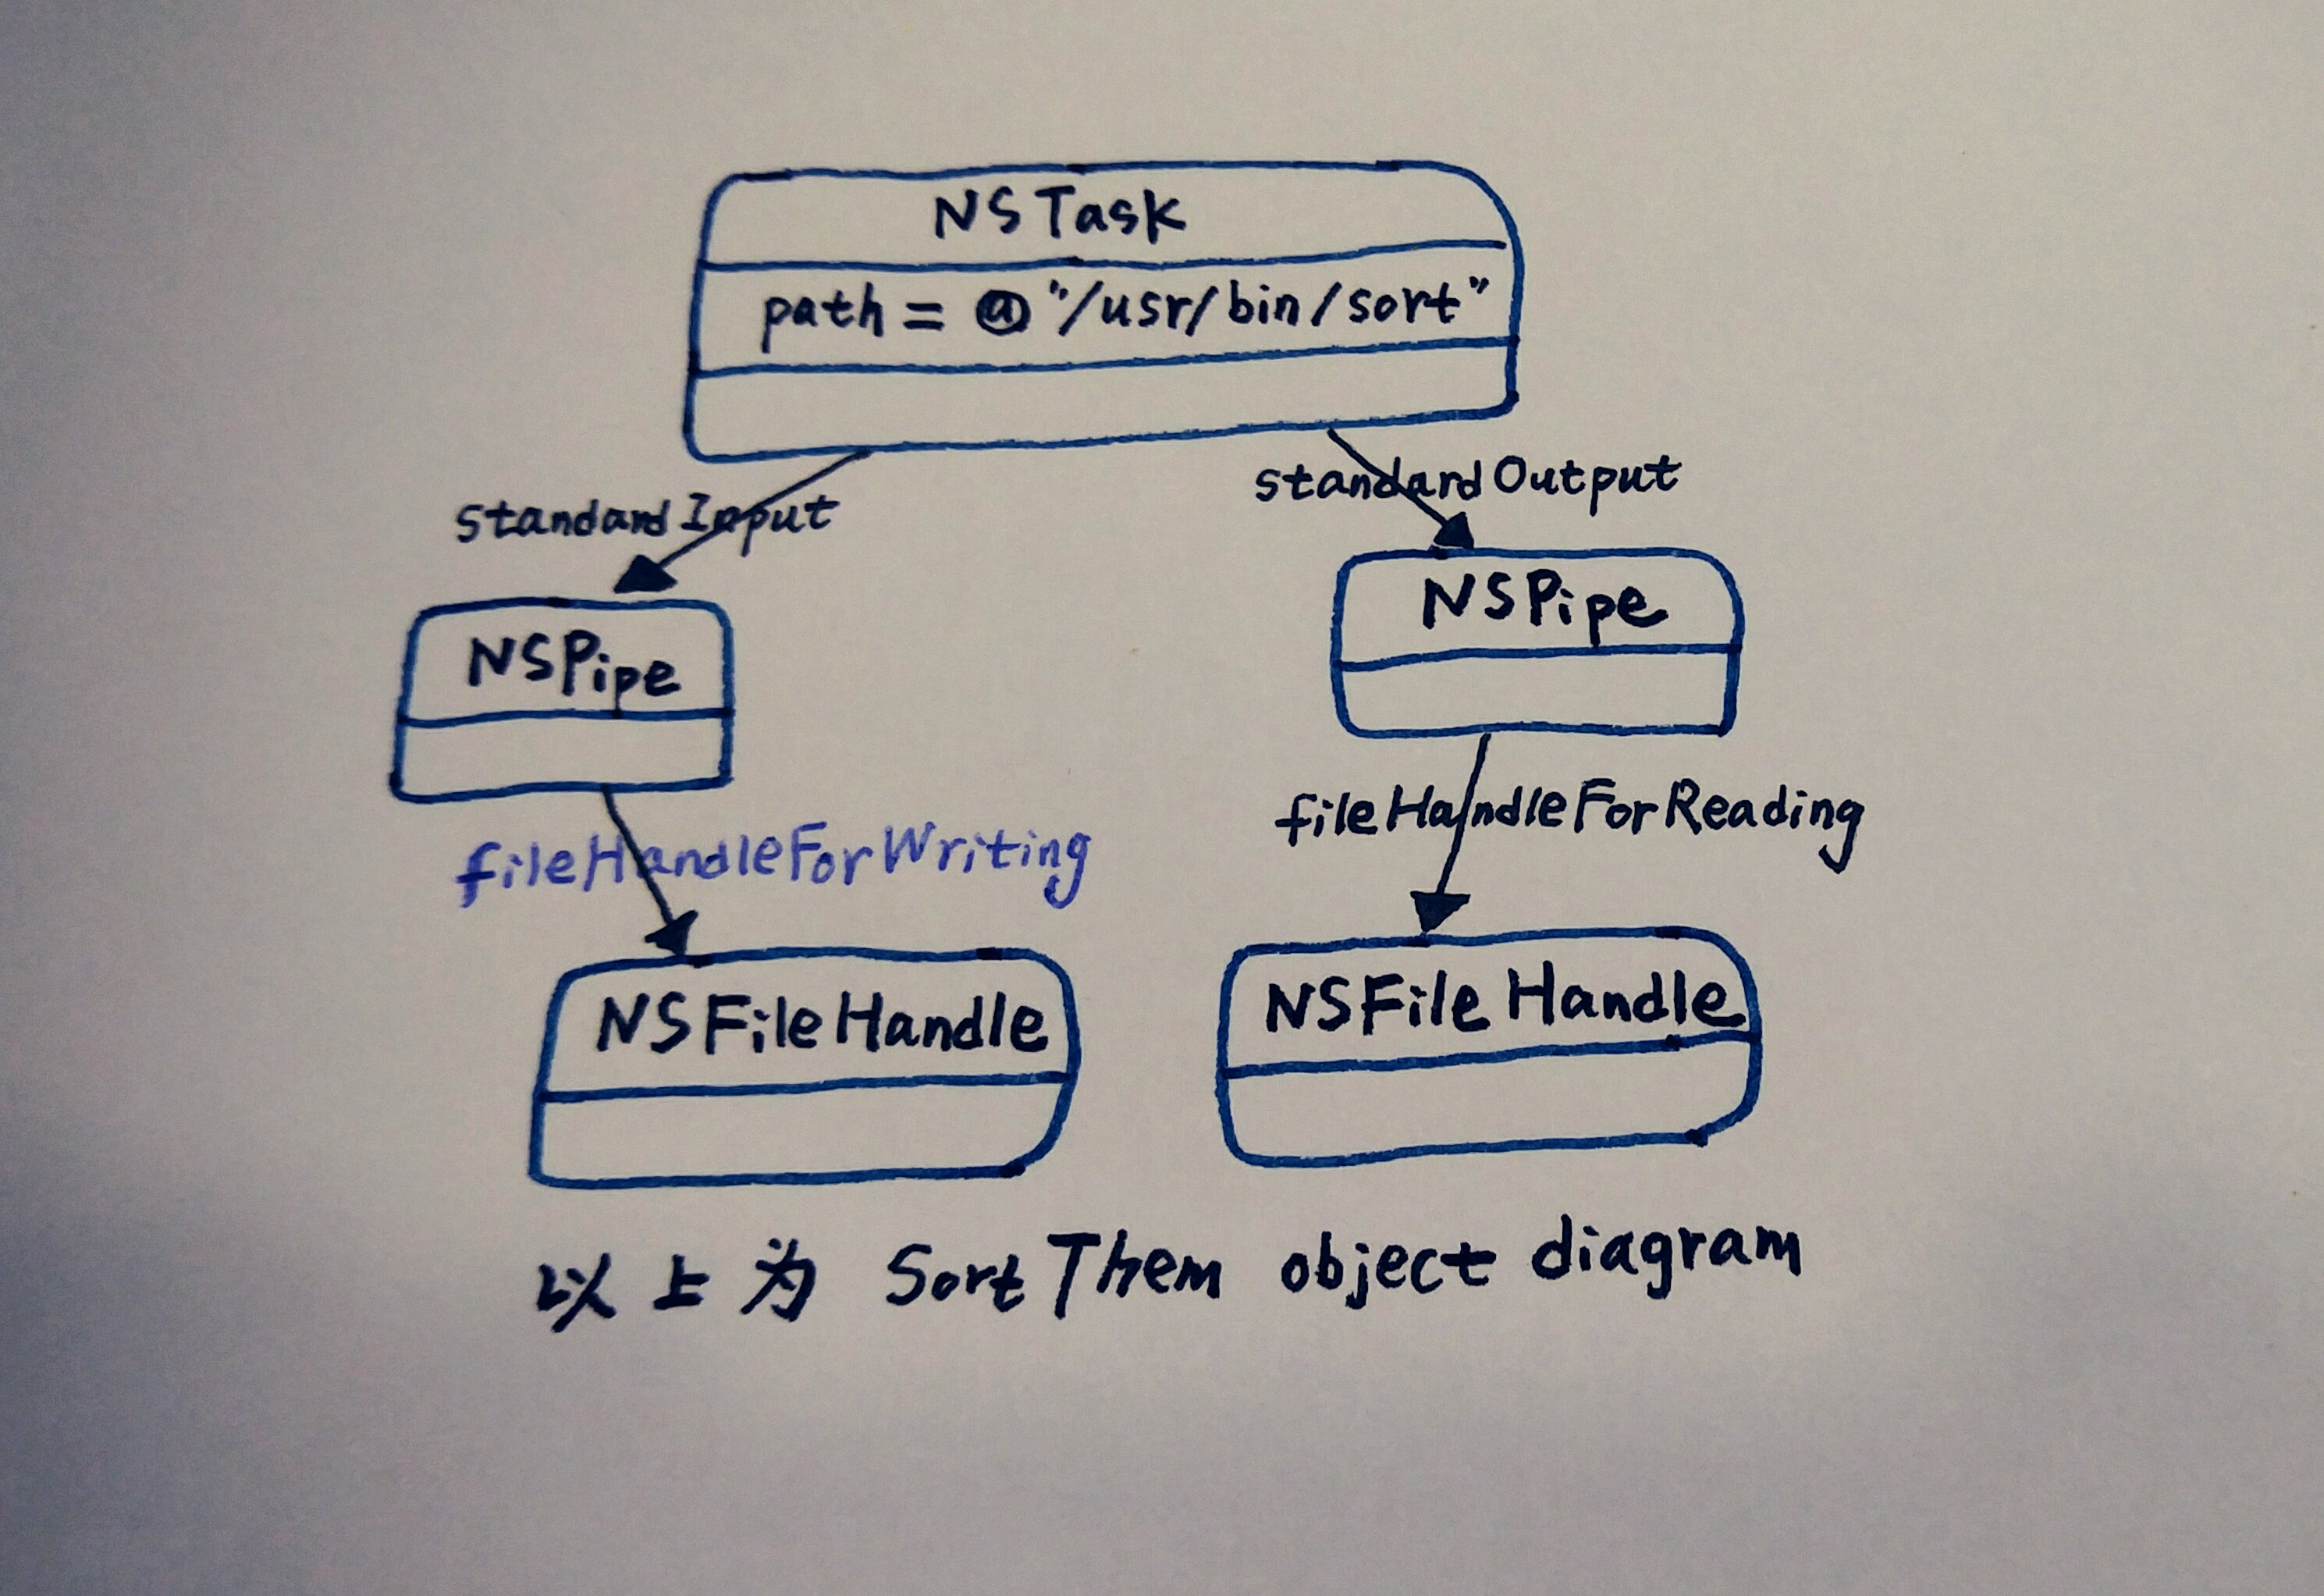 NSTask
path = @"/usr/bin/sort"
standardInput
standardOutput
NSPipe
NSPipe
fileHandleForWriting
fileHandleForReading
NSFileHandle
NSFileHandle
以上为 SortThem object diagram